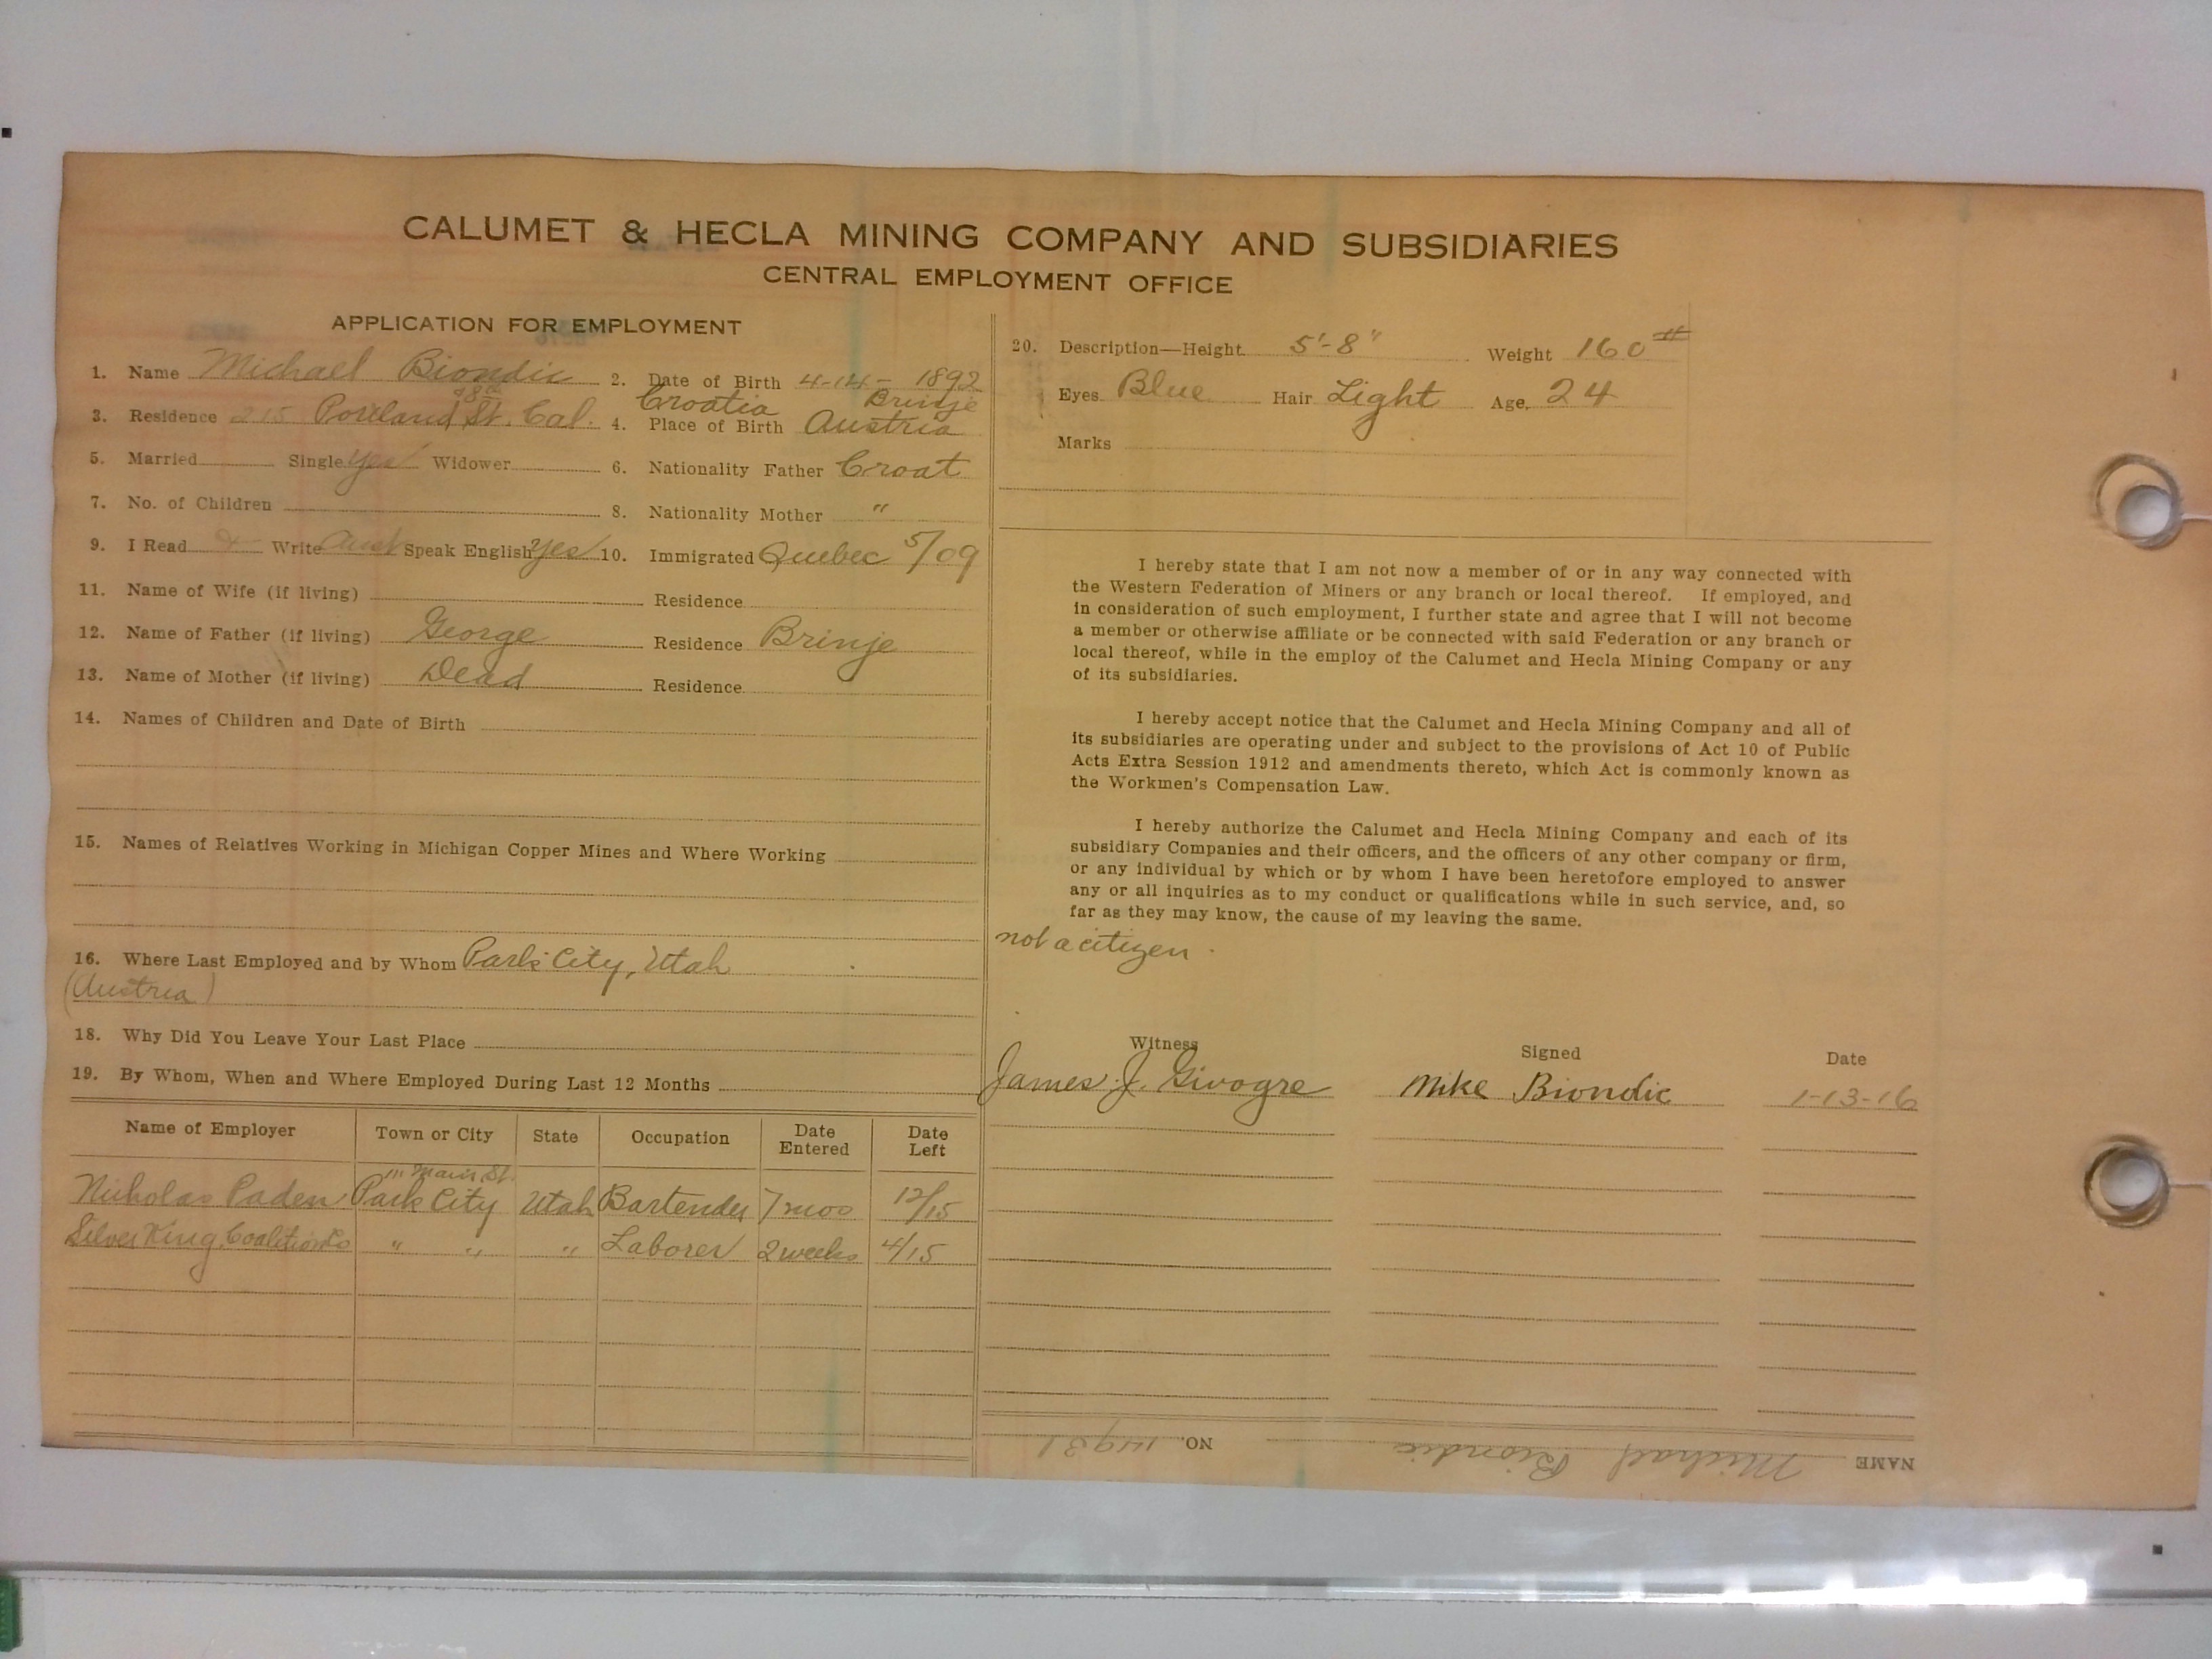 CALUMET & HECLA MINING COMPANY AND SUBSIDIARIES
CENTRAL EMPLOYMENT OFFICE
APPLICATION FOR EMPLOYMENT
1. Name Michael Biondic 2. Date of Birth 4-14-1892
Croatia Brinje
3. Residence 215 Portland St. Cal. 4. Place of Birth Austria
5. Married Single yes Widower 6. Nationality Father Croat
7. No. of Children 8. Nationality Mother "
9. I Read & Write Aust Speak English yes 10. Immigrated Quebec 5/09
11. Name of Wife (if living) Residence
12. Name of Father (if living) George Residence Brinje
13. Name of Mother (if living) Dead Residence
14. Names of Children and Date of Birth
15. Names of Relatives Working in Michigan Copper Mines and Where Working
16. Where Last Employed and by Whom Park City, Utah
(Austria)
18. Why Did You Leave Your Last Place
19. By Whom, When and Where Employed During Last 12 Months
Name of Employer Town or City State Occupation Date Entered Date Left
Main St.
Nicholas Paden Park City Utah Bartender 7 mos 12/15
Silver King Coalition Co " " " Laborer 2 weeks 4/15
20. Description—Height 5'-8" Weight 160#
Eyes Blue Hair Light Age 24
Marks
I hereby state that I am not now a member of or in any way connected with
the Western Federation of Miners or any branch or local thereof. If employed, and
in consideration of such employment, I further state and agree that I will not become
a member or otherwise affiliate or be connected with said Federation or any branch or
local thereof, while in the employ of the Calumet and Hecla Mining Company or any
of its subsidiaries.
I hereby accept notice that the Calumet and Hecla Mining Company and all of
its subsidiaries are operating under and subject to the provisions of Act 10 of Public
Acts Extra Session 1912 and amendments thereto, which Act is commonly known as
the Workmen's Compensation Law.
I hereby authorize the Calumet and Hecla Mining Company and each of its
subsidiary Companies and their officers, and the officers of any other company or firm,
or any individual by which or by whom I have been heretofore employed to answer
any or all inquiries as to my conduct or qualifications while in such service, and, so
far as they may know, the cause of my leaving the same.
not a citizen.
Witness Signed Date
James J. Givogre Mike Biondic 1-13-16
NAME Michael Biondic NO. 14931